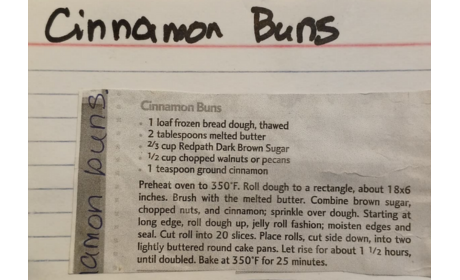 Cinnamon Buns
amon buns
Cinnamon Buns
• 1 loaf frozen bread dough, thawed
• 2 tablespoons melted butter
• 2/3 cup Redpath Dark Brown Sugar
• 1/2 cup chopped walnuts or pecans
• 1 teaspoon ground cinnamon
Preheat oven to 350°F. Roll dough to a rectangle, about 18x6
inches. Brush with the melted butter. Combine brown sugar,
chopped nuts, and cinnamon; sprinkle over dough. Starting at
long edge, roll dough up, jelly roll fashion; moisten edges and
seal. Cut roll into 20 slices. Place rolls, cut side down, into two
lightly buttered round cake pans. Let rise for about 1 1/2 hours,
until doubled. Bake at 350°F for 25 minutes.